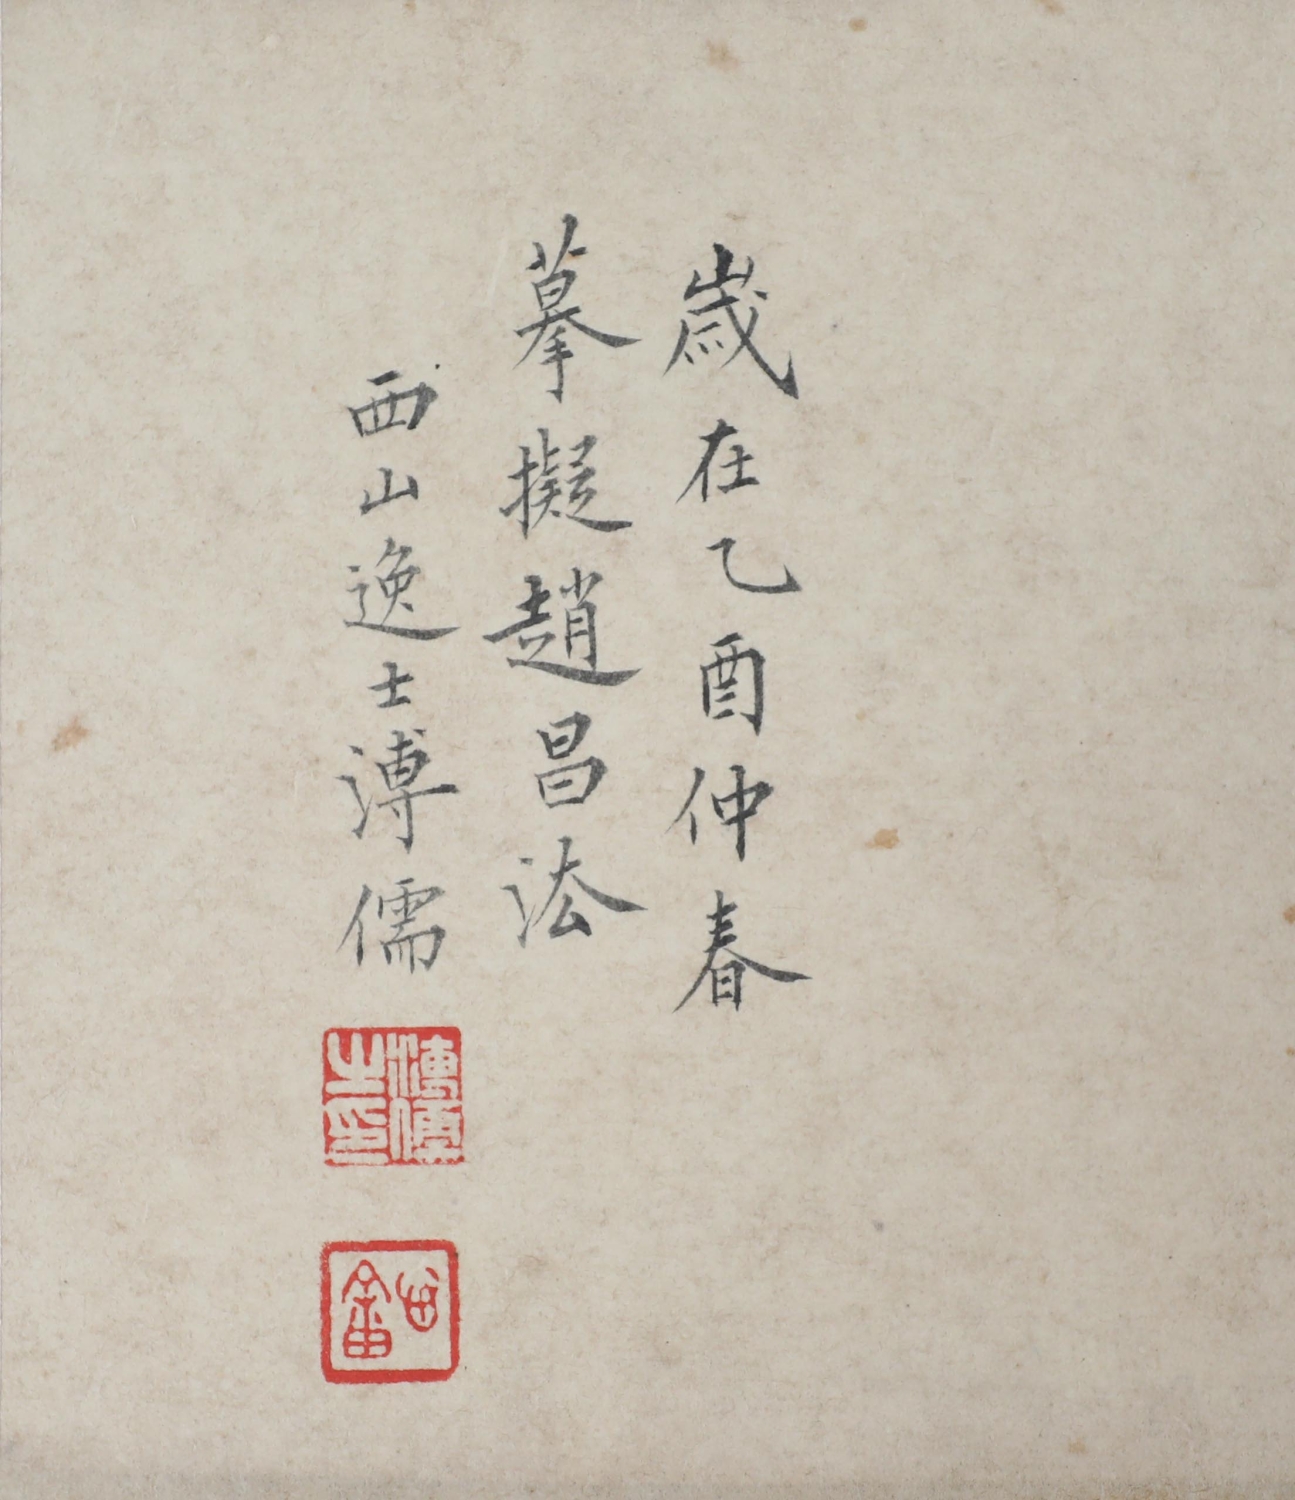 歲在乙酉仲春
摹擬趙昌法
西山逸士溥儒
溥儒之印
舊畬